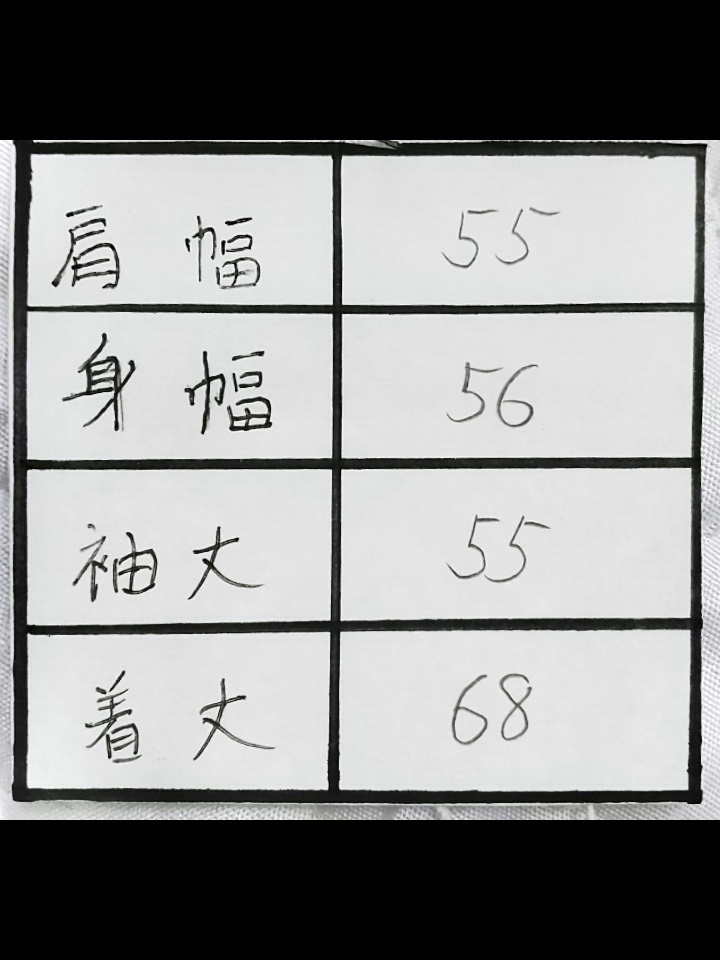 肩幅 55
身幅 56
袖丈 55
着丈 68